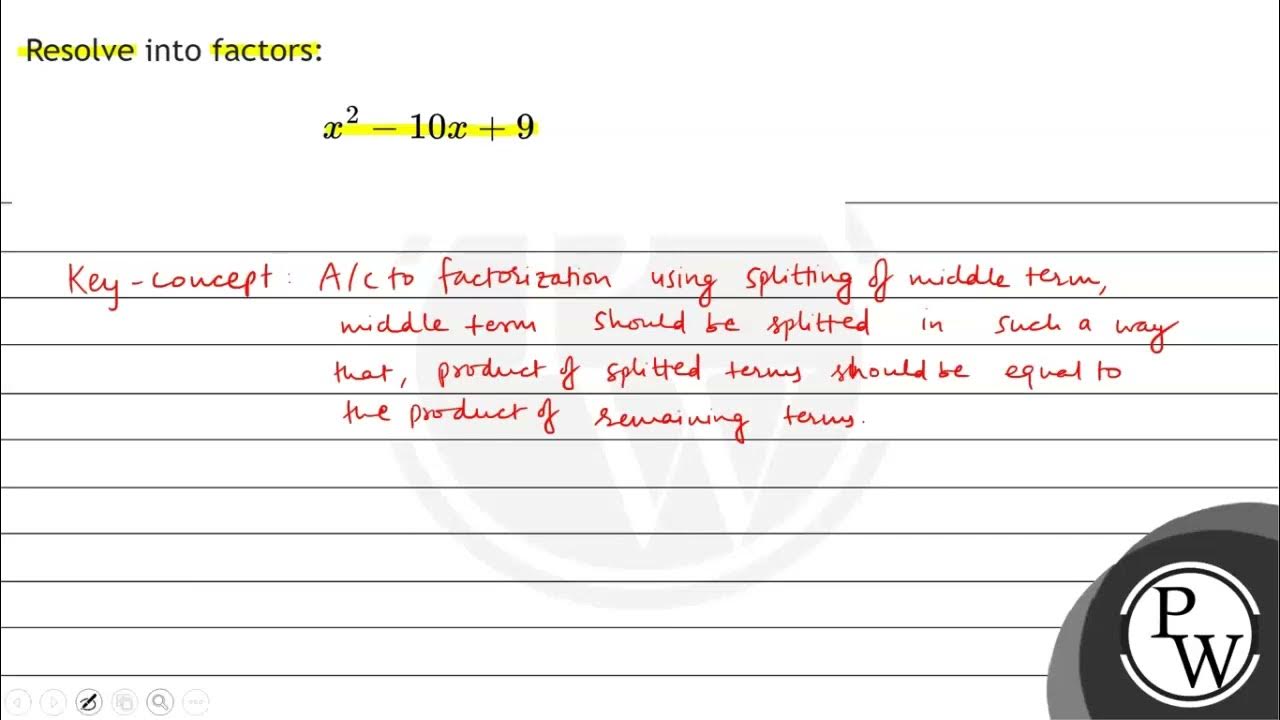 Resolve into factors:
x² − 10x + 9
Key-concept: A/c to factorization using splitting of middle term,
middle term should be splitted in such a way
that, product of splitted terms should be equal to
the product of remaining terms.
PW